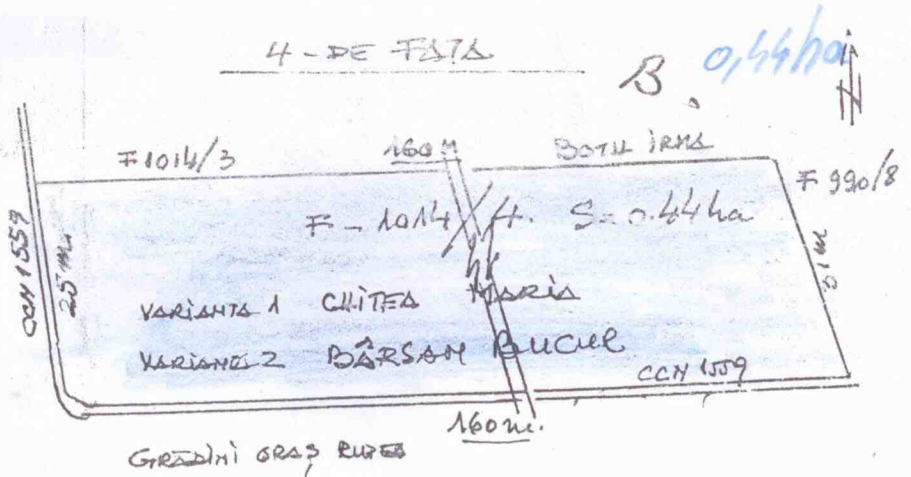 4 - DE FATA
B. 0,44 ha
F 1014/3
160 M
BOTH IRMA
F 990/8
F - 1014/4. S = 0.44 ha
CCN 1559
25 m
31 m
VARIANTA 1 CHITEA MARIA
VARIANTA 2 BÂRSAN BUCUR
CCN 1559
160 m.
GRĂDINI ORAȘ RUPEA